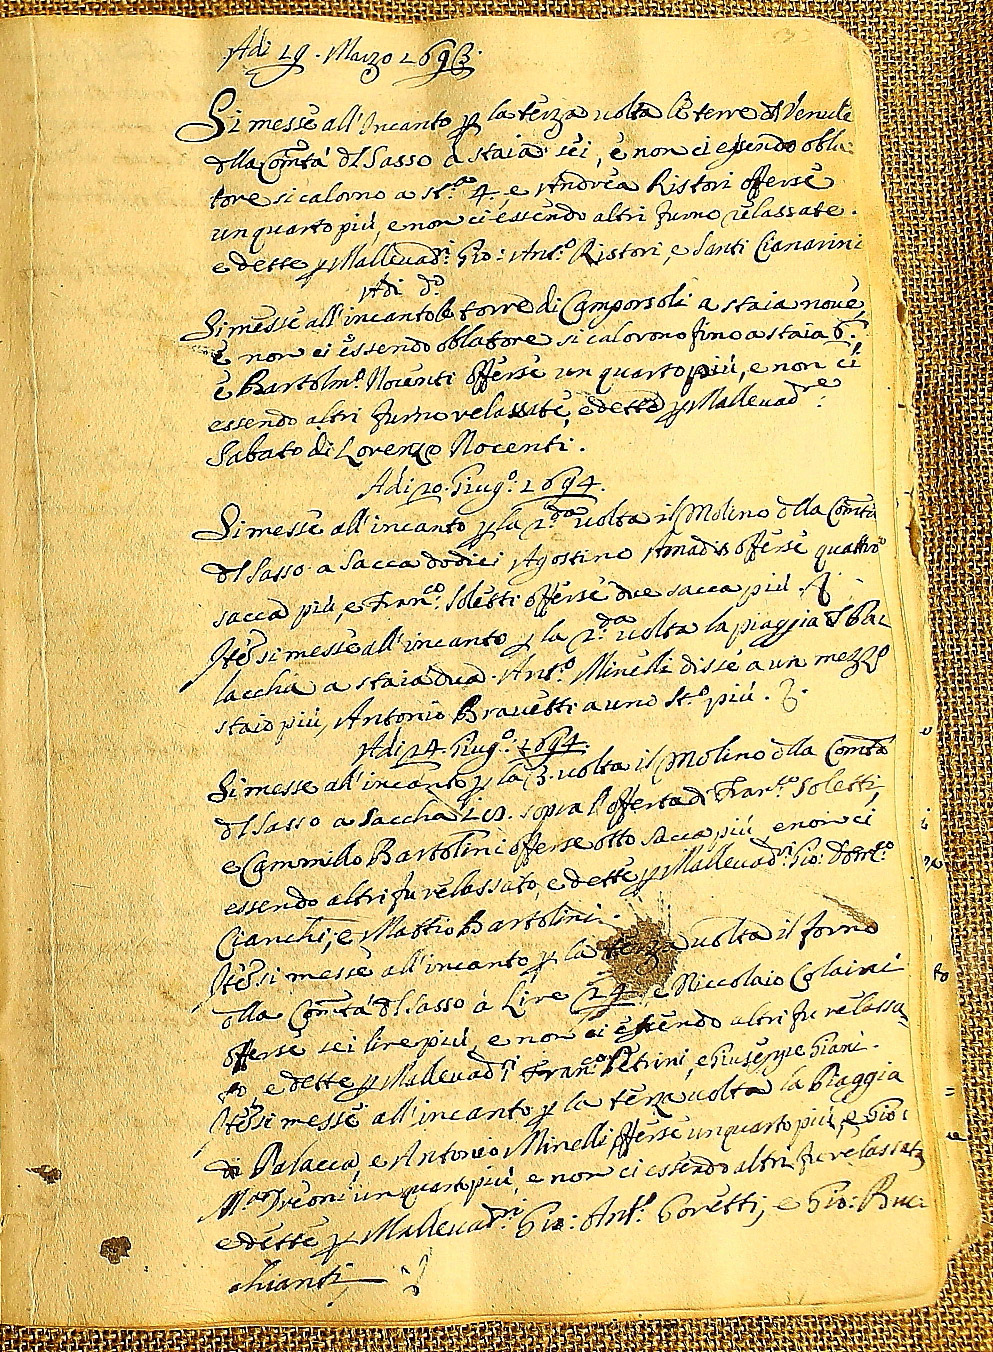 Adi 29. Marzo 1693.
Si messe all'Incanto p la terza volta le terre d Venute
dlla Comtà dl Sasso a staia sei, e non ci essendo obla
tore si calorno a sta. 4. e Andrea Ristori offerse
un quarto più, e non ci essendo altri furno relassate.
e dette p Mallevadri Gio: Anto. Ristori, e Santi Cianarini
Adi do.
Si messe all'incanto le terre di Camporsoli a staia nove,
e non ci essendo oblatore si calorono fino a staia 6.,
e Bartolmo. Nocenti offerse un quarto più, e non ci
essendo altri furno relassate, e dette p Mallevadre:
Sabato di Lorenzo Nocenti.
Adi 20. Giugo. 1694.
Si messe all'incanto p la 2.da volta il Molino dlla Comtà
dl Sasso a Sacca dodici Agostino Amadis offerse quattro
sacca più, e Franco. Soletti offerse due sacca più.
Ite si messe all'incanto p la 2.da volta la piaggia d Ba
lacchia a staia dua. Anto. Minelli disse a un mezzo
staio più, Antonio Bravetti a uno sto. più.
Adi 24. Giugo. 1694.
Si messe all'incanto p la 3. volta il Molino dlla Comtà
dl Sasso a Saccha sopra l'offerta di Franco. Soletti,
e Cammillo Bartolini offerse otto sacca più, e non ci
essendo altri fu relassato, e dette p Mallevadri Gio: Domco.
Cianchi, e Matteo Bartolini.
Ite si messe all'incanto p la terza volta il forno
dlla Comtà dl Sasso a Lire 24. e Niccolaio Colaini
offerse sei lire più, e non ci essendo altri fu relassa
to, e dette p Mallevadri Franco. Petrini, e Giuseppe Giani.
Ite si messe all'incanto p la terza volta la Piaggia
di Balacca, e Antonio Minelli offerse un quarto più, e Gio:
un quarto più, e non ci essendo altri fu relassata
e dette p Mallevadri Gio: Anto. Goretti, e Gio: Buc
chianti,